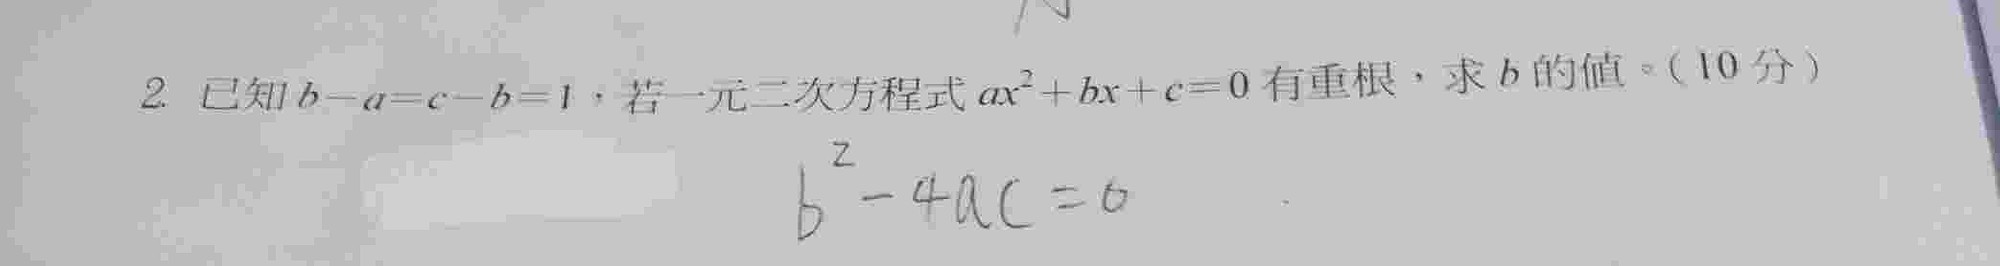 2. 已知 b－a＝c－b＝1，若一元二次方程式 ax²＋bx＋c＝0 有重根，求 b 的值。（10 分）
b²－4ac＝0